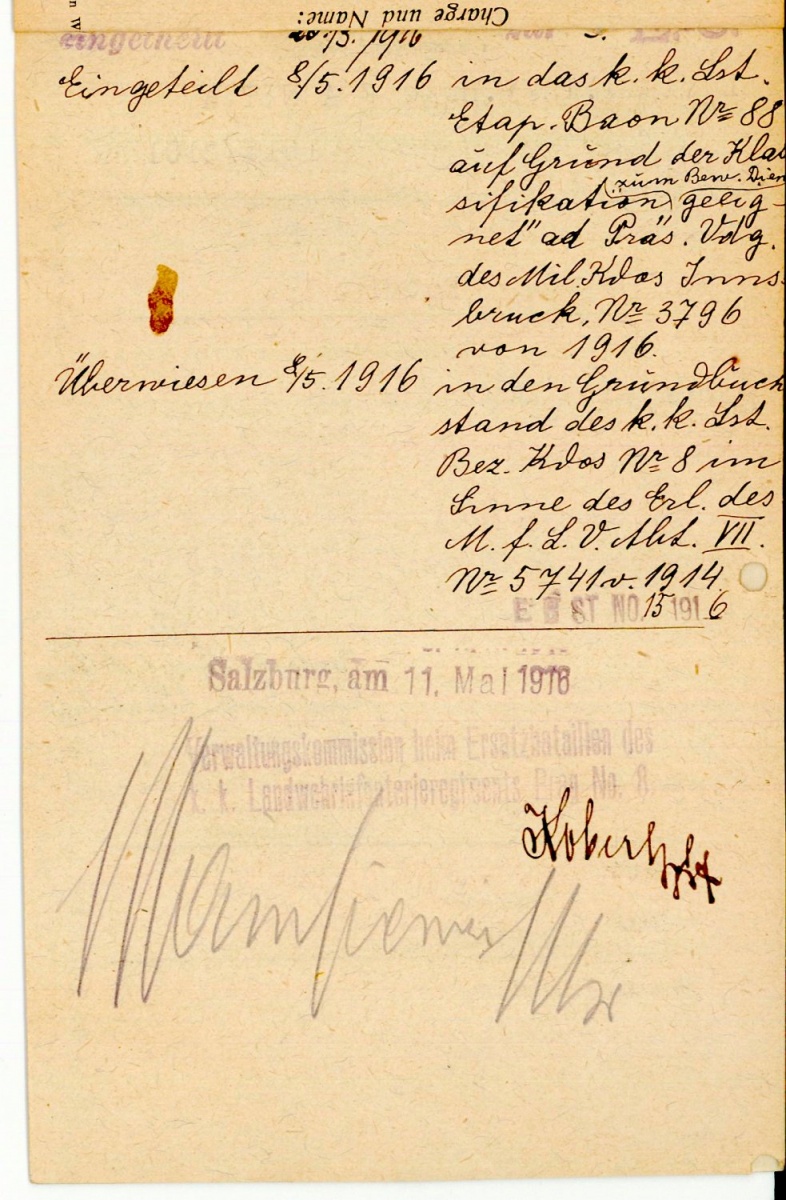 Charge und Name:
eingeteilt
Eingeteilt 8/5. 1916 in das k. k. Lst.
Etap. Baon Nr 88
auf Grund der Klas
sifikation „zum Bew. Dien
geeig-
net" ad Präs. Vdg.
des Mil. Kdos Inns
bruck, Nr 3796
von 1916.
Überwiesen 8/5. 1916 in den Grundbuch
stand des k. k. Lst.
Bez. Kdos Nr 8 im
Sinne des Erl. des
M. f. L. V. Abt. VII.
Nr 5741 v. 1914
E B ST NO 15 1916
Salzburg, am 11. Mai 1916
Verwaltungskommission beim Ersatzbataillon des
k. k. Landwehrinfanterieregiments Prag No. 8.